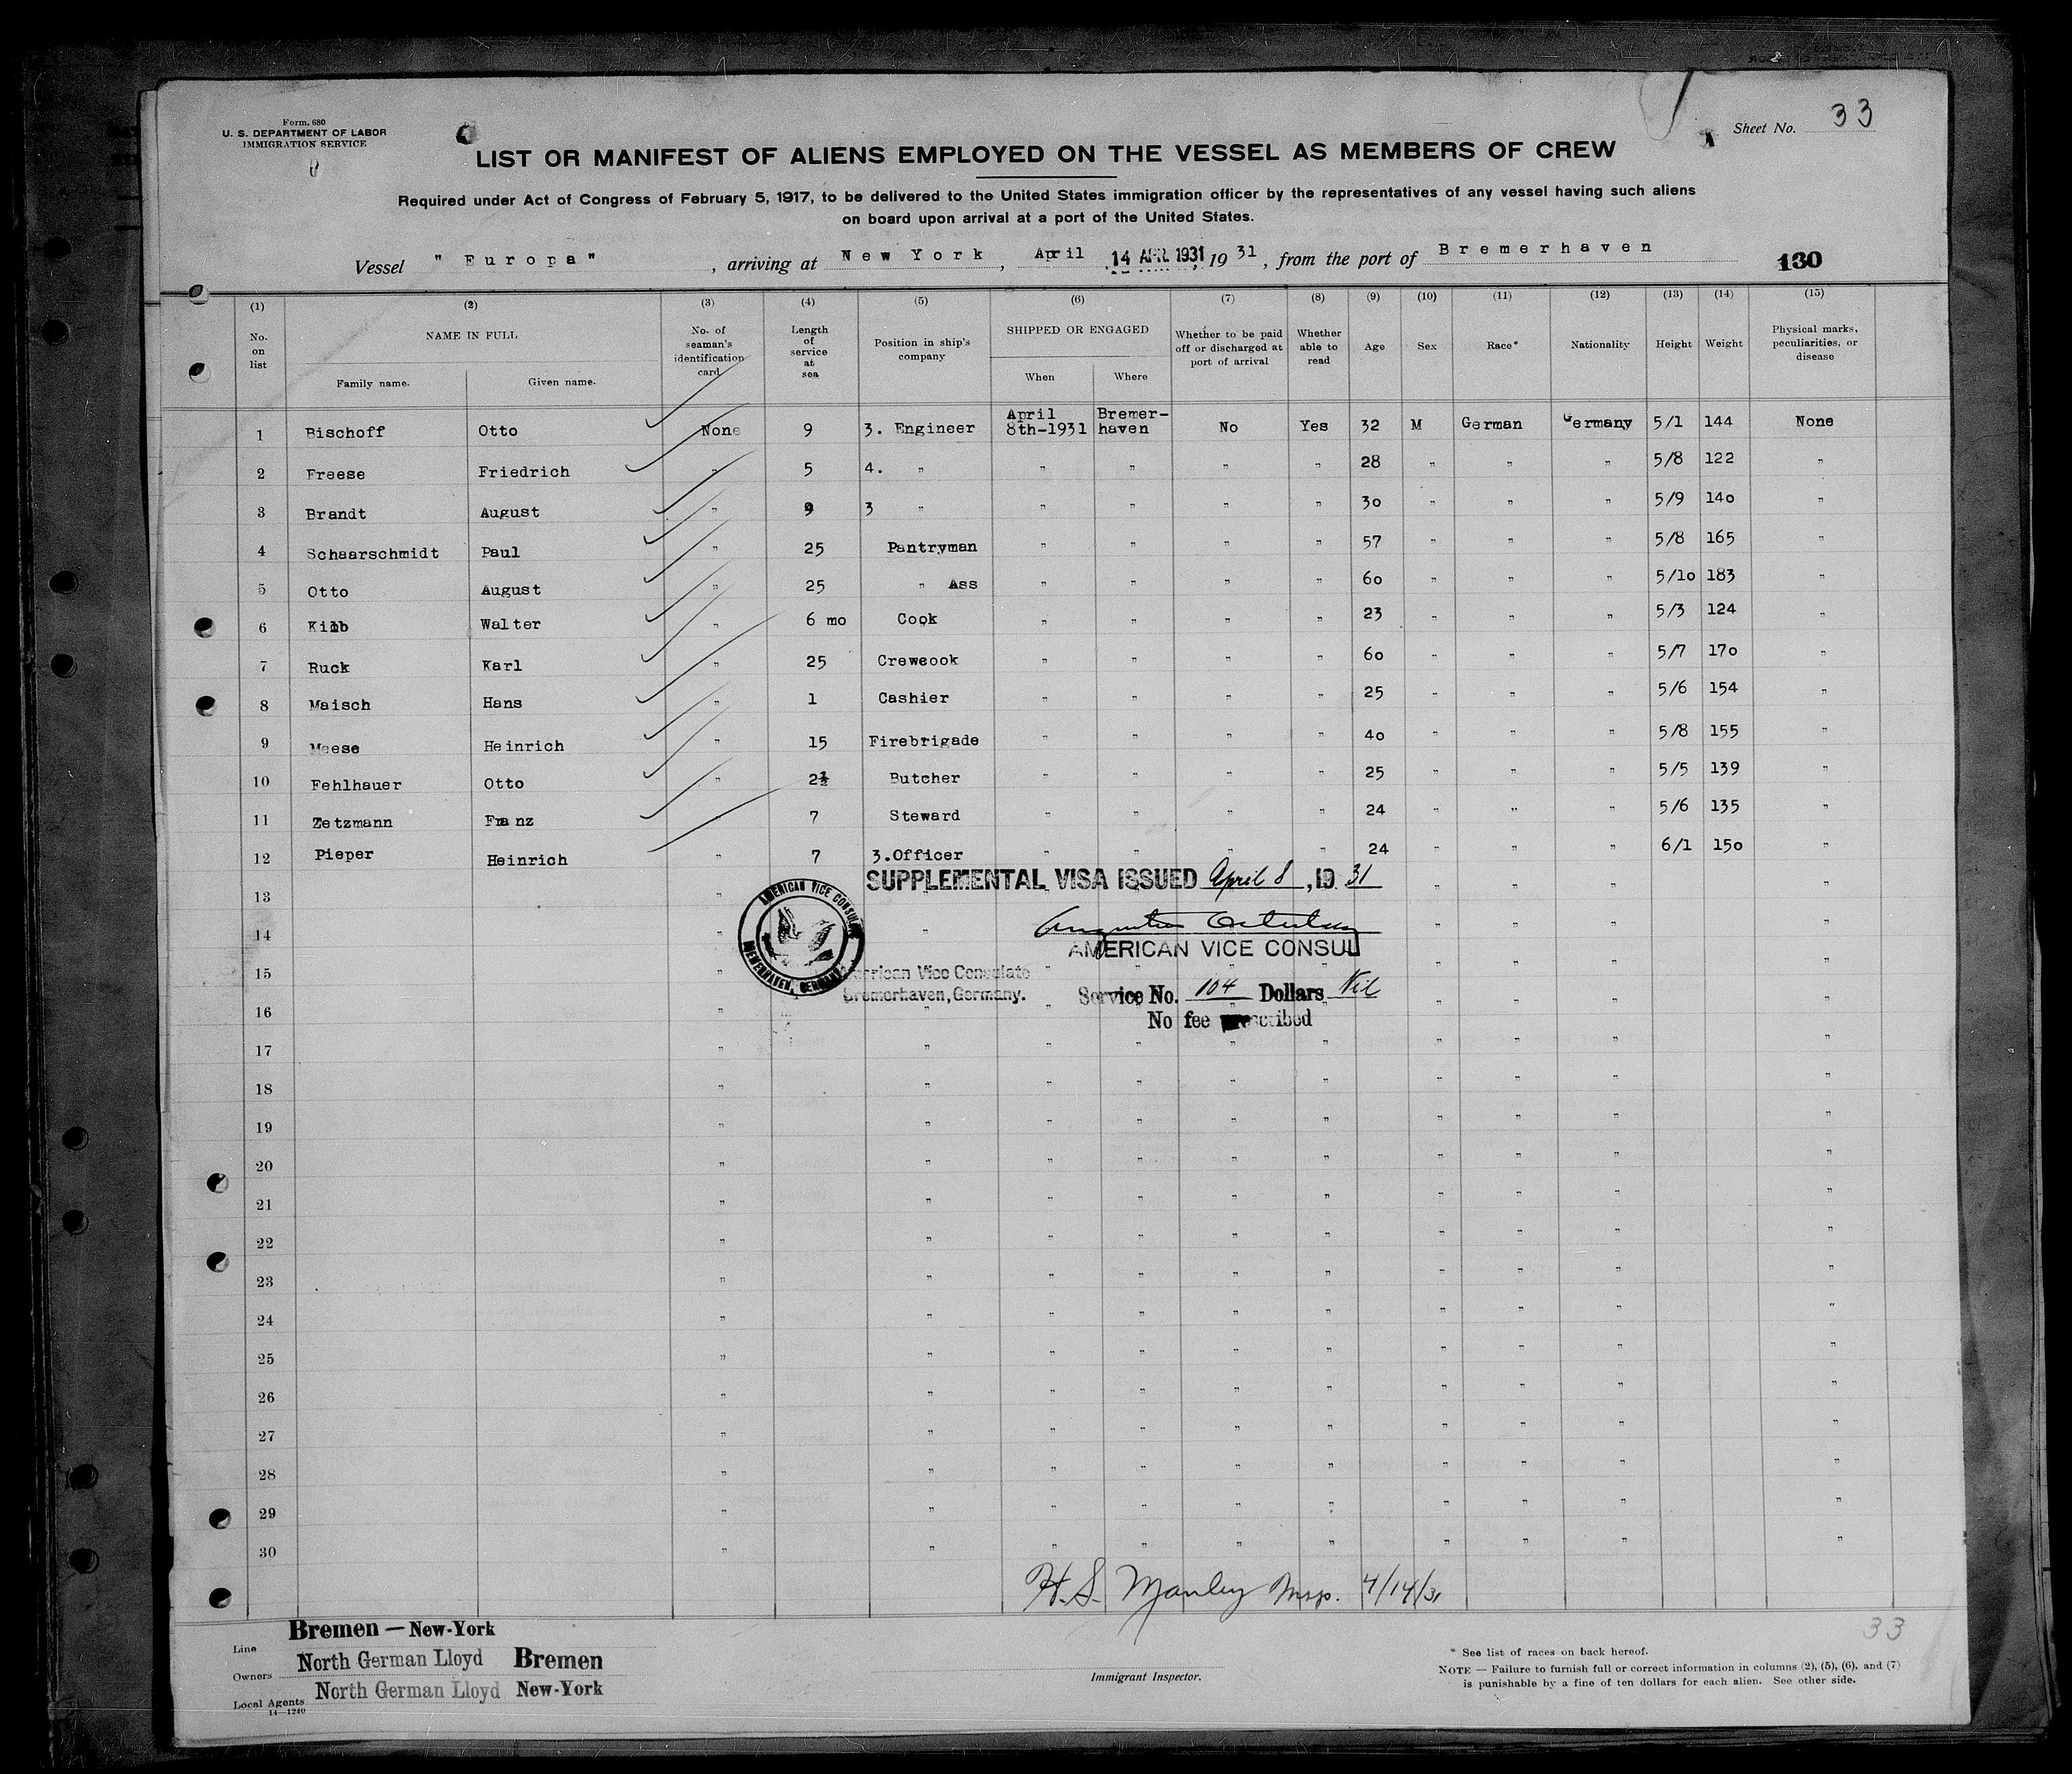 Form. 680
U. S. DEPARTMENT OF LABOR
IMMIGRATION SERVICE
Sheet No. 33
LIST OR MANIFEST OF ALIENS EMPLOYED ON THE VESSEL AS MEMBERS OF CREW
Required under Act of Congress of February 5, 1917, to be delivered to the United States immigration officer by the representatives of any vessel having such aliens
on board upon arrival at a port of the United States.
Vessel "Europa", arriving at New York, April 14 APR. 1931, 1931, from the port of Bremerhaven 130
(1) (2) (3) (4) (5) (6) (7) (8) (9) (10) (11) (12) (13) (14) (15)
No. on list NAME IN FULL Family name. Given name. No. of seaman's identification card Length of service at sea Position in ship's company SHIPPED OR ENGAGED When Where Whether to be paid off or discharged at port of arrival Whether able to read Age Sex Race* Nationality Height Weight Physical marks, peculiarities, or disease
1 Bischoff Otto None 9 3. Engineer April 8th-1931 Bremer-haven No Yes 32 M German Germany 5/1 144 None
2 Freese Friedrich " 5 4. " " " " " 28 " " " 5/8 122 "
3 Brandt August " 9 3 " " " " " 30 " " " 5/9 140 "
4 Schaarschmidt Paul " 25 Pantryman " " " " 57 " " " 5/8 165 "
5 Otto August " 25 " Ass " " " " 60 " " " 5/10 183 "
6 Walter " 6 mo Cook " " " " 23 " " " 5/3 124 "
7 Ruck Karl " 25 Crewcook " " " " 60 " " " 5/7 170 "
8 Maisch Hans " 1 Cashier " " " " 25 " " " 5/6 154 "
9 Meese Heinrich " 15 Firebrigade " " " " 40 " " " 5/8 155 "
10 Fehlhauer Otto " 2½ Butcher " " " " 25 " " " 5/5 139 "
11 Zetzmann Franz " 7 Steward " " " " 24 " " " 5/6 135 "
12 Pieper Heinrich " 7 3.Officer " " " " 24 " " " 6/1 150 "
SUPPLEMENTAL VISA ISSUED April 8, 19 31
13
AMERICAN VICE CONSUL
BREMERHAVEN, GERMANY
14
AMERICAN VICE CONSUL
15
American Vice Consulate
Bremerhaven, Germany.
Service No. 104 Dollars Nil
16
No fee prescribed
17
18
19
20
21
22
23
24
25
26
27
28
29
30
H. S. Manley Insp. 4/14/31
Line Bremen — New-York
Owners North German Lloyd Bremen
Local Agents North German Lloyd New-York
14—1240
Immigrant Inspector.
33
* See list of races on back hereof.
NOTE — Failure to furnish full or correct information in columns (2), (5), (6), and (7)
is punishable by a fine of ten dollars for each alien. See other side.